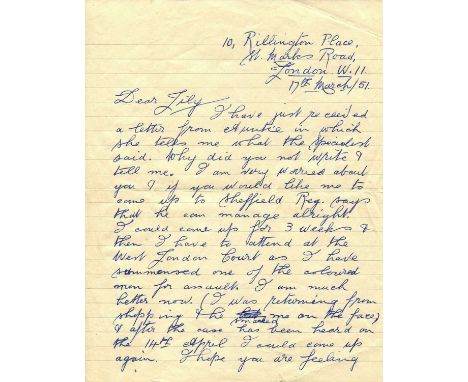 10, Rillington Place,
St. Marks Road,
London. W. 11.
17th March/51.
Dear Lily
I have just received
a letter from Auntie in which
she tells me what the specialist
said. Why did you not write &
tell me. I am very worried about
you & if you would like me to
come up to Sheffield Reg. says
that he can manage alright.
I could come up for 3 weeks &
then I have to attend at the
West London Court as I have
summonsed one of the coloured
men for assault. I am much
better now. (I was returning from
shopping & he smacked me on the face)
& after the case has been heard on
the 14th April I could come up
again. I hope you are feeling